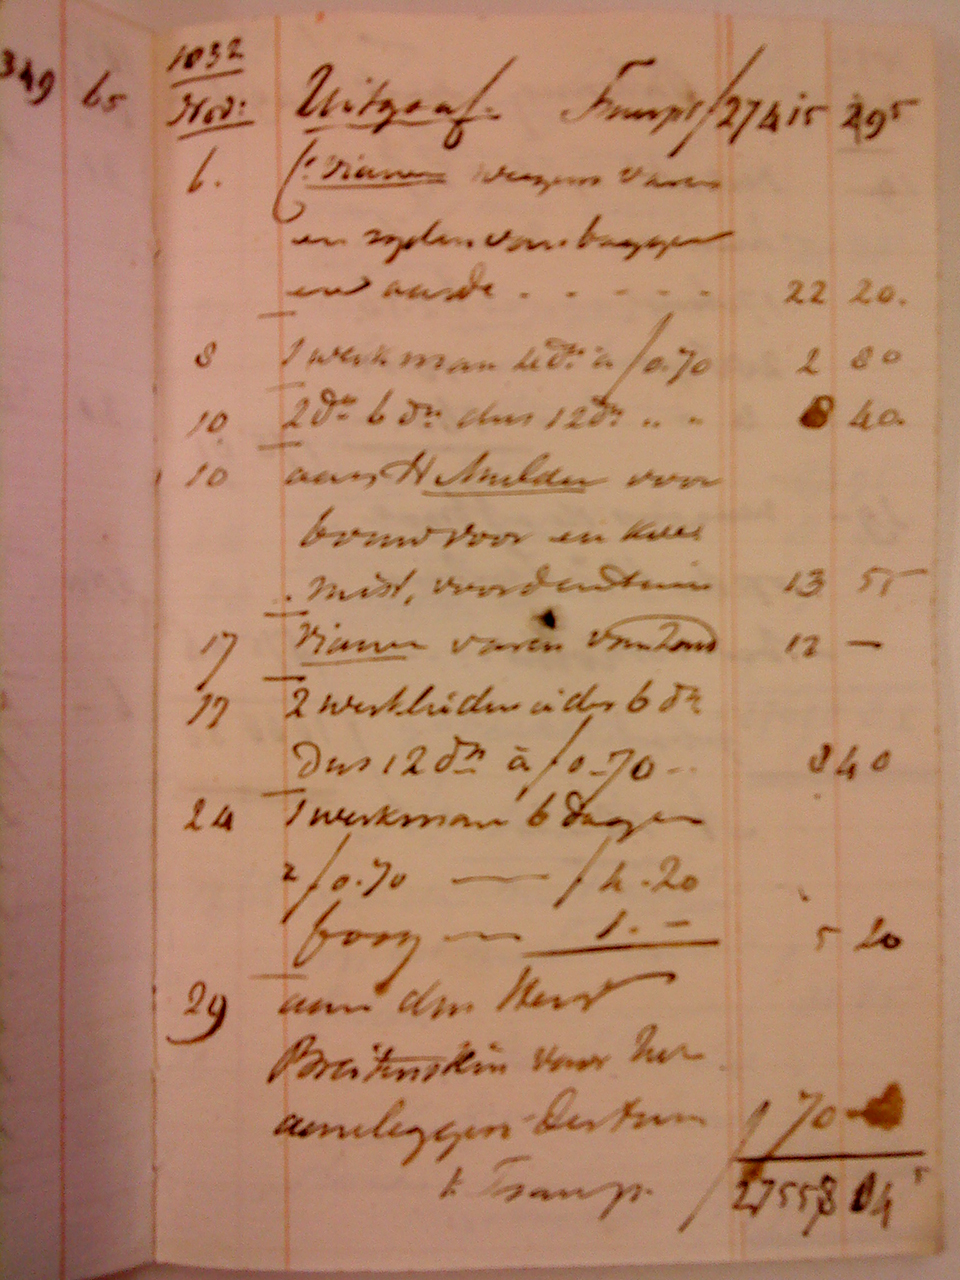 349 65
1832
Nov: Uitgaaf. Transpt ƒ 27415 295
6. Vianen wegens varen
en ryden van bagger
en aarde . - - - - - 22 20.
8 1 werkman 4 dn à ƒ 0.70 2 80
10 2 dn 6 dn dus 12 dn .. - 8 40.
10 aan H Mulder voor
bouwvoor en koe
mist, voor den tuin 13 55
17 Vianen varen van zand 12 —
17 2 werklieden ieder 6 dn
Dus 12 dn à ƒ 0.70 -- 8 40
24 1 werkman 6 dagen
à ƒ 0.70 — ƒ 4.20
fooy — 1. - 5 20
29 aan den Heer
Breitenstein voor het
aanleggen des tuin ƒ 70 -
t Transp. ƒ 27558 045